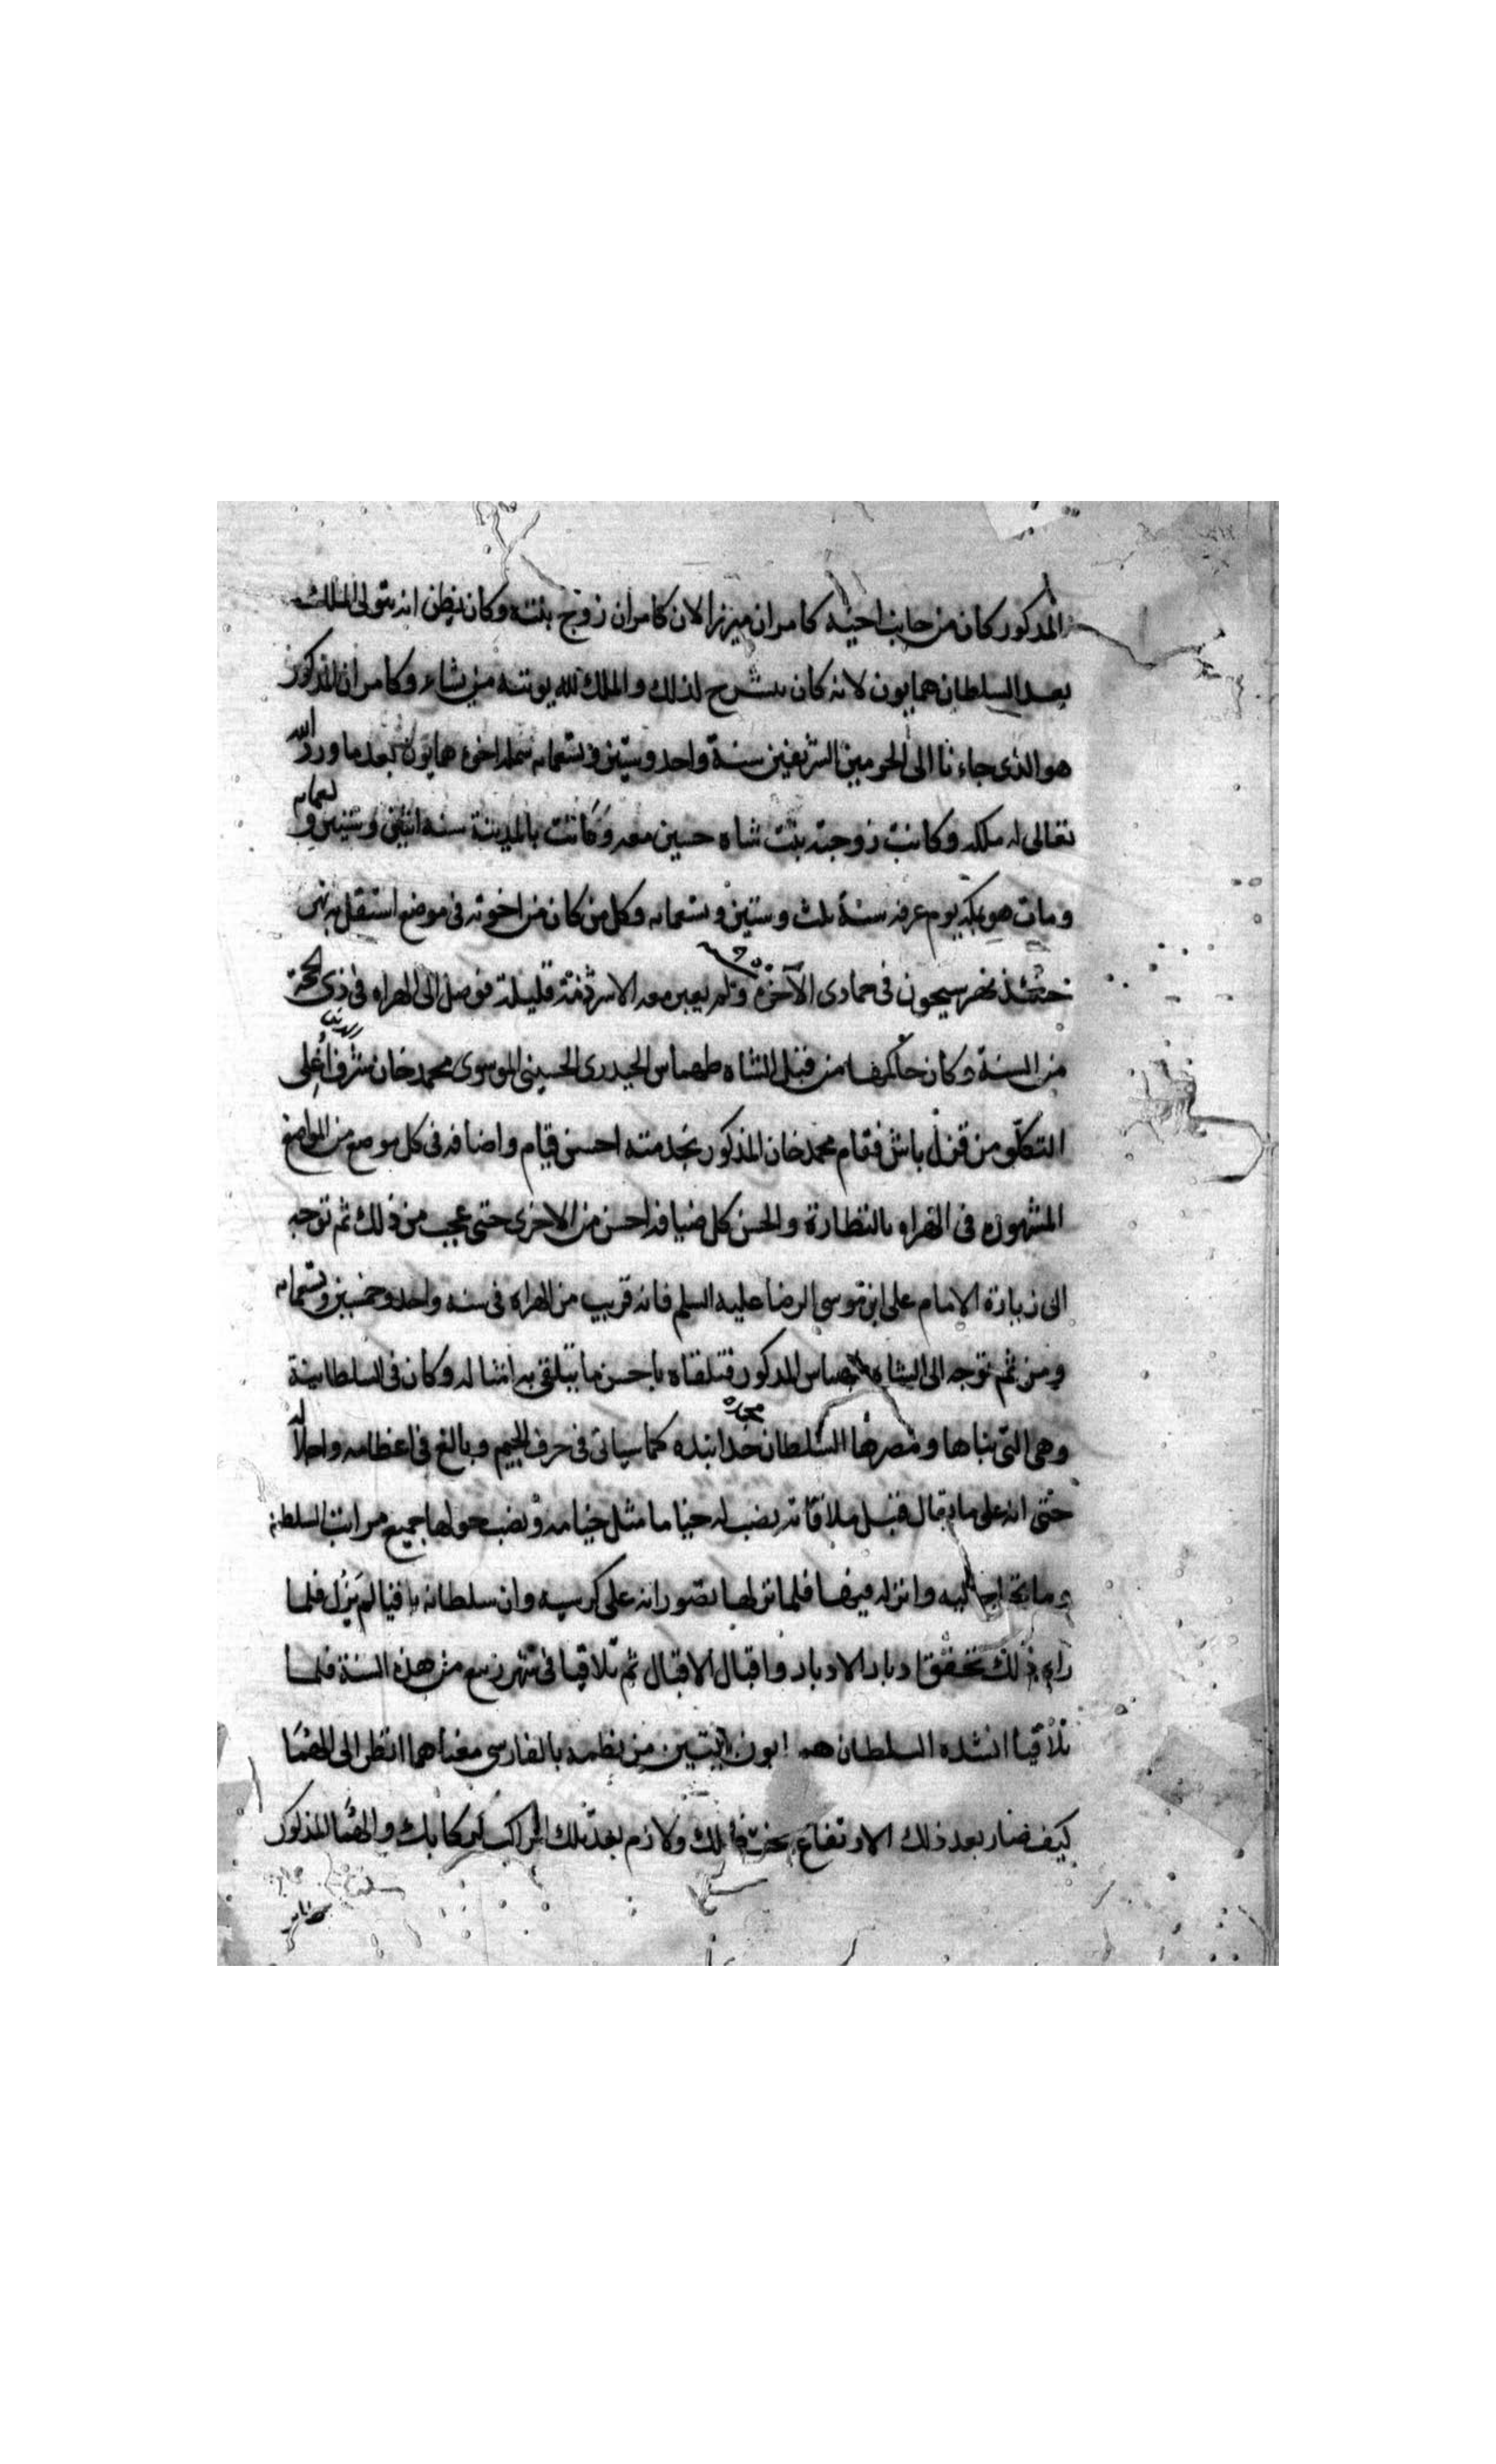 المذكور كان من جانب اخيه كامران ميرزا لان كامران زوج بنته وكان يظن انه يتولى الملك
بعد السلطان همايون لانه كان ينشرح لذلك والملك لله يوتيه من يشاء وكامران المذكور
هو الذى جاءنا الى الحرمين الشريفين سنة واحد وستين وتسعمايه اخوه همايون بعد ما ورد الله
تعالى له ملكه وكانت زوجته بنت شاه حسين معه وكانت بالمدينة سنه اثنين وستين و تسعمايه
ومات هو بمكه يوم عرفه سنة ثلث وستين وتسعمايه وكل من كان من اخوته فى موضع استقل به
حينئذ نهر سيحون فى جمادى الآخره ولم يعبر معه الا شرذمة قليلة فوصل الى الهراه فى ذى الحجة
من السنة وكان حاكمها من قبل الشاه طهماس الحيدرى الحسينى الموسوى محمد خان شرف اغلى
التكلو من قزل باش فقام محمد خان المذكور بخدمته احسن قيام واضافه فى كل موضع من المواضع
المشهوره فى الهراه بالنظارة والحسن كل ضيافه احسن من الاخرى حتى عجب من ذلك ثم توجه
الى زيارة الامام على ابن موسى الرضا عليه السلم فانه قريب من الهراه فى سنه واحد وخمسين وتسعمايه
ومن ثم توجه الى الشاه طهماس المذكور فتلقاه باحسن ما يتلقى به امثاله وكان فى السلطانية
وهى التى بناها ومصرها السلطان خدابنده كما سياتى فى حرف الجيم وبالغ فى اعظامه واجلاله
حتى انه على ما يقال قبل ملاقاته نصب له خياما مثل خيامه ونصب حولها جميع مراتب السلطنة
وما يحتاج اليه وانزله فيها فلما نزلها تصور انه على كرسيه وان سلطانه باقيا لم يزل فلما
راى ذلك تحقق ادبار الادبار واقبال الاقبال ثم تلاقيا فى شهر ربيع من هذه السنة فلما
تلاقيا انشده السلطان همايون بيتين من نظمه بالفارسى معناهما انظر الى الهما
كيف صار بعد ذلك الارتفاع تحت ظلك ولازم بعد تلك المراكب لركابك والهما المذكور
طاير